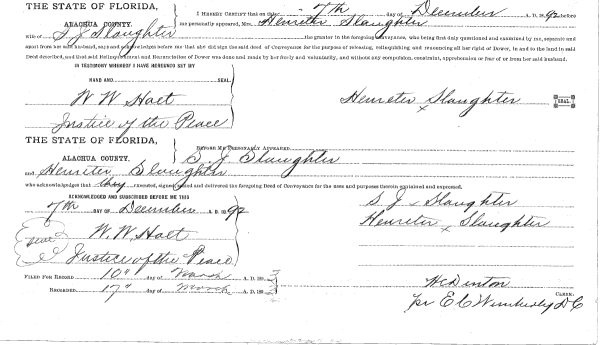 THE STATE OF FLORIDA,
ALACHUA COUNTY.
I HEREBY CERTIFY that on this 7th day of December A. D. 1892 before
me personally appeared, Mrs. Henreter Slaughter
wife of S J Slaughter the grantor in the foregoing conveyance, who being first duly questioned and examined by me, separate and
apart from her said husband, says and acknowledges before me that she did sign the said deed of Conveyance for the purpose of releasing, relinquishing and renouncing all her right of Dower, in and to the land in said
Deed described, and that said Relinquishment and Renunciation of Dower was done and made by her freely and voluntarily, and without any compulsion, constraint, apprehension or fear of or from her said husband.
IN TESTIMONY WHEREOF I HAVE HEREUNTO SET MY
HAND AND SEAL.
W W Holt
Justice of the Peace
Henreter x Slaughter SEAL.
THE STATE OF FLORIDA,
ALACHUA COUNTY.
BEFORE ME PERSONALLY APPEARED S. J Slaughter
and Henreter Slaughter
who acknowledges that they executed, signed, sealed and delivered the foregoing Deed of Conveyance for the uses and purposes therein explained and expressed.
ACKNOWLEDGED AND SUBSCRIBED BEFORE ME THIS
7th DAY OF December A. D. 1892
Seal
W. W Holt
Justice of the Peace
S. J x Slaughter
Henreter x Slaughter
FILED FOR RECORD 10" day of March A. D. 189
RECORDED 17" day of March A. D. 189
H C Denton CLERK.
pr E C Wimberly D C